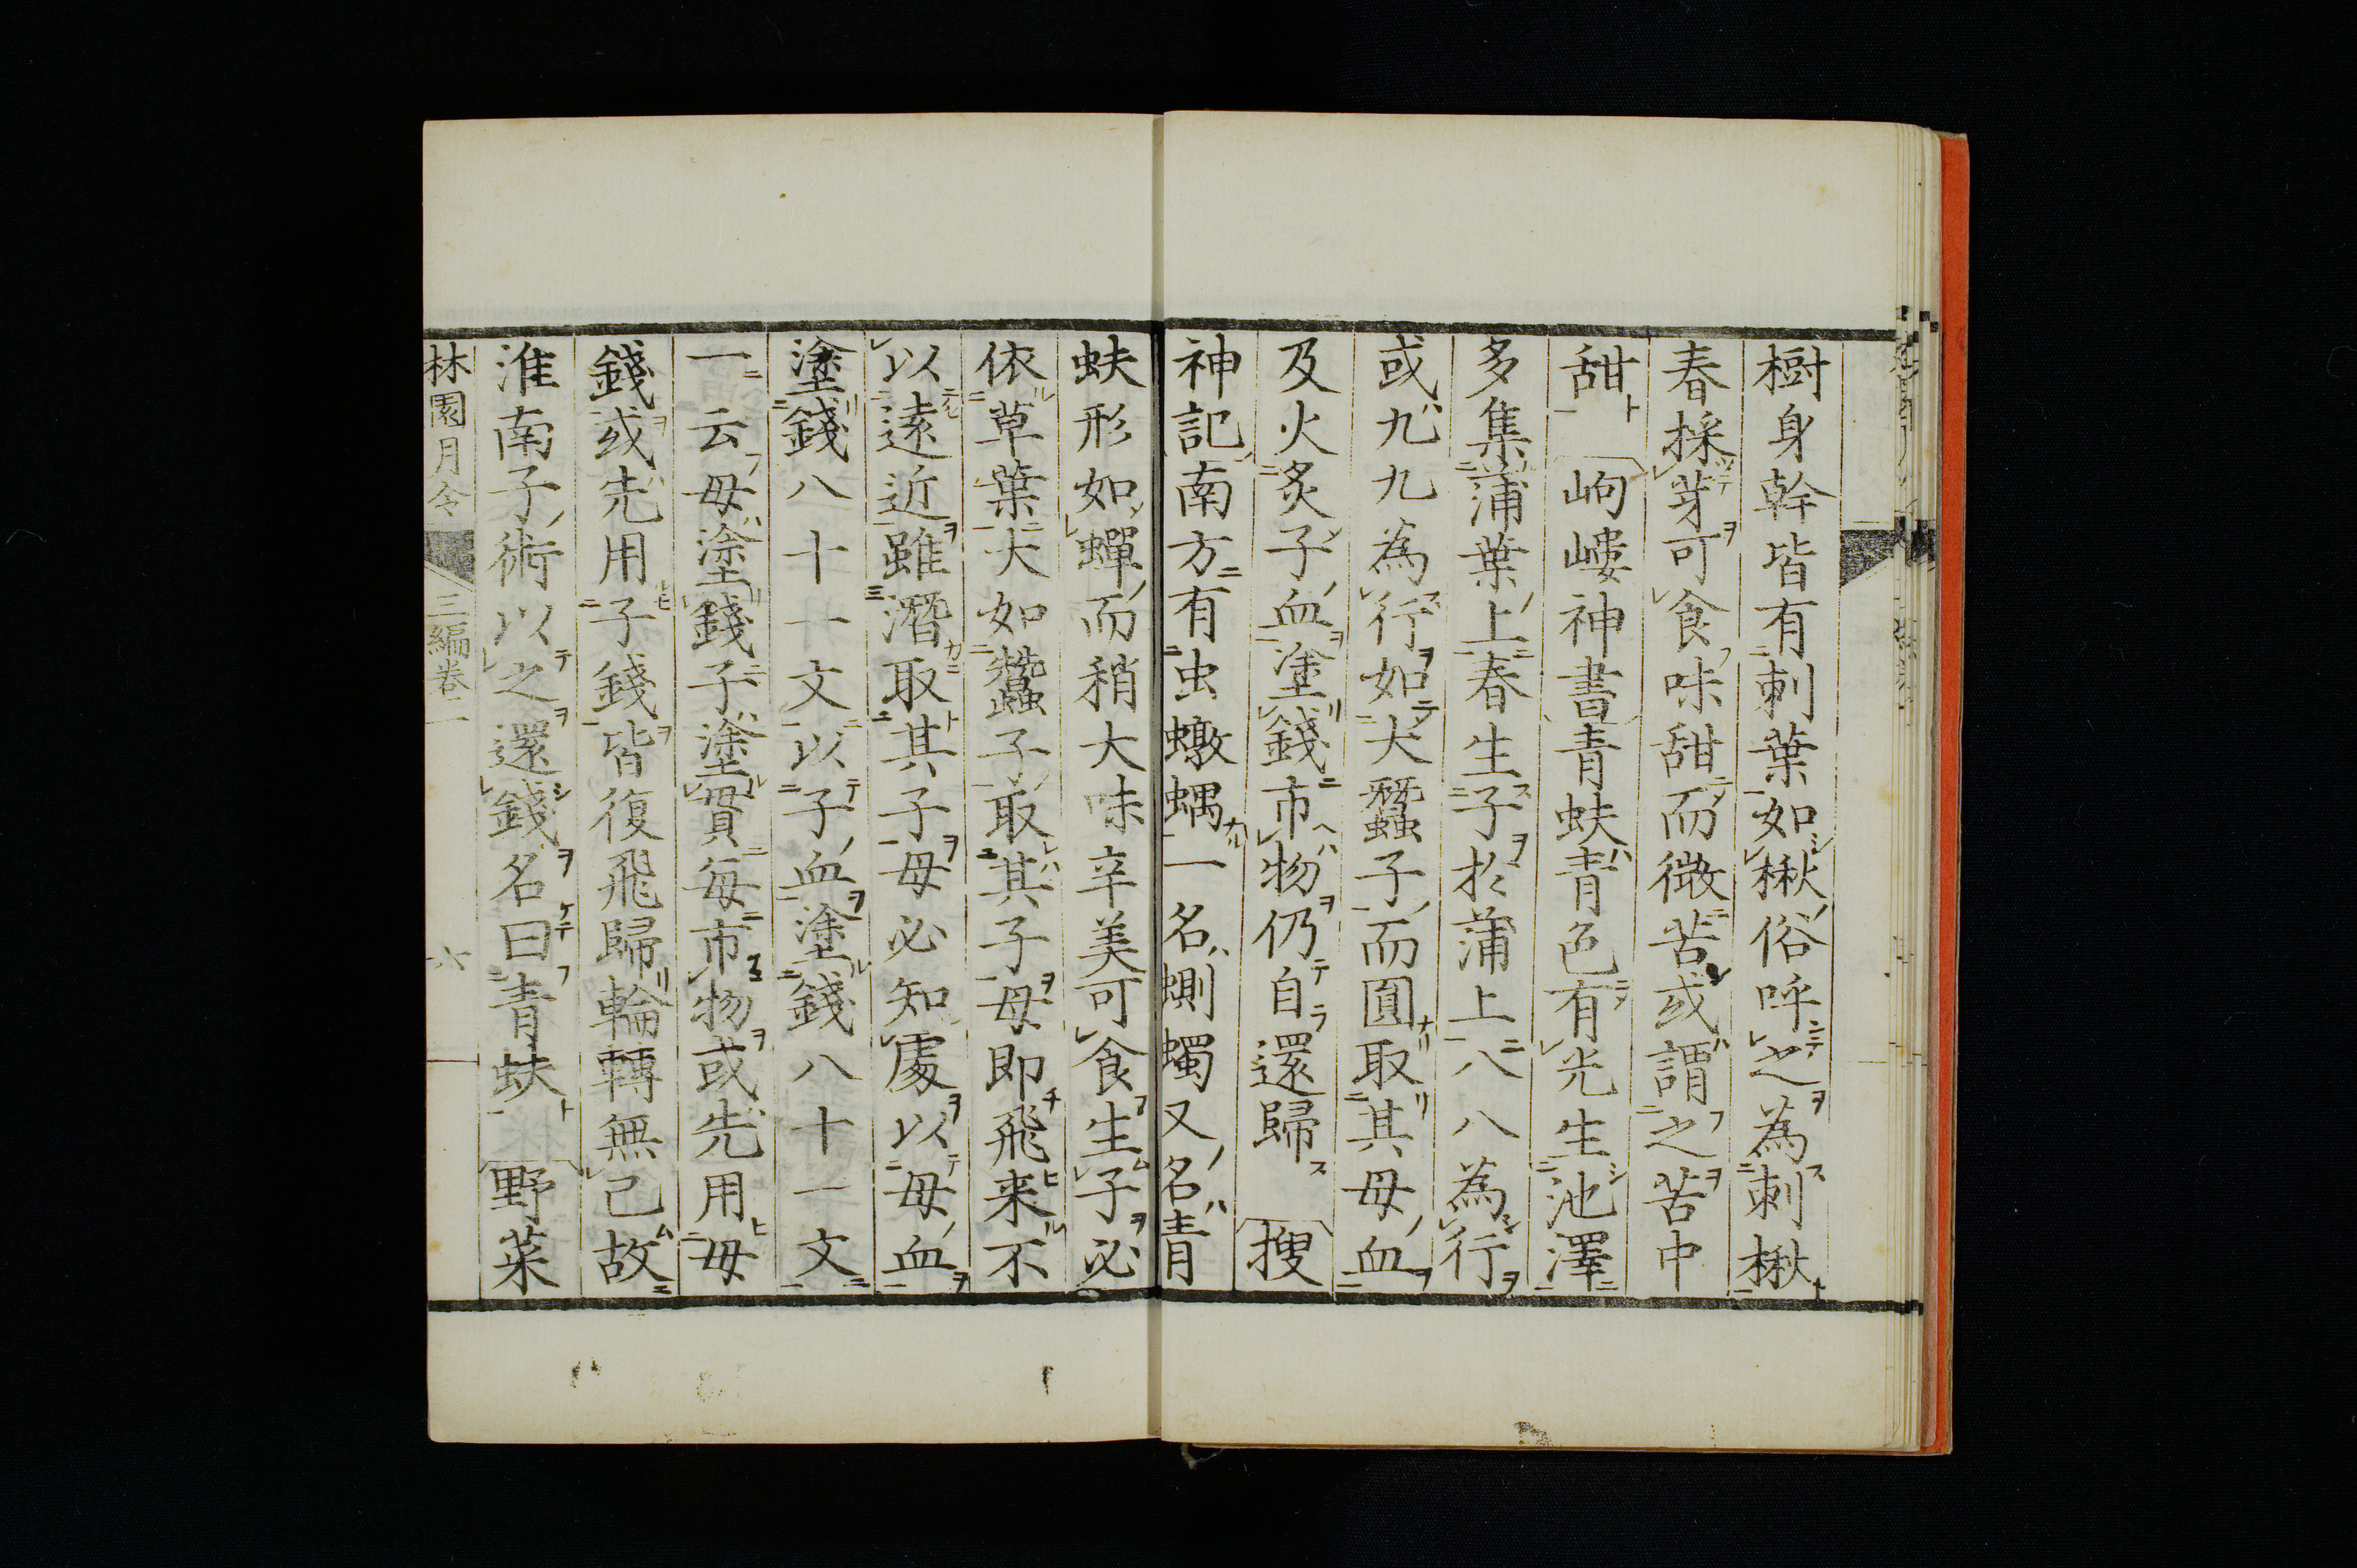 樹身幹皆有刺葉如楸俗呼之為刺楸
春採芽可食味甜而微苦或謂之苦中
甜 岣嶁神書青蚨青色有光生池澤
多集蒲葉上春生子於蒲上八八為行
或九九為行如大蠶子而圓取其母血
及火炙子血塗錢市物仍自還歸 搜
神記南方有虫蠍蝺一名蝍蠋又名青
蚨形如蟬而稍大味辛美可食生子必
依草葉大如蠶子取其子母即飛来不
以遠近雖潛取其子母必知處以母血
塗錢八十一文以子血塗錢八十一文
一云母塗錢子塗貫每市物或先用母
錢或先用子錢皆復飛歸輪轉無已故
淮南子術以之還錢名曰青蚨 野菜
林園月令 三編卷二 六